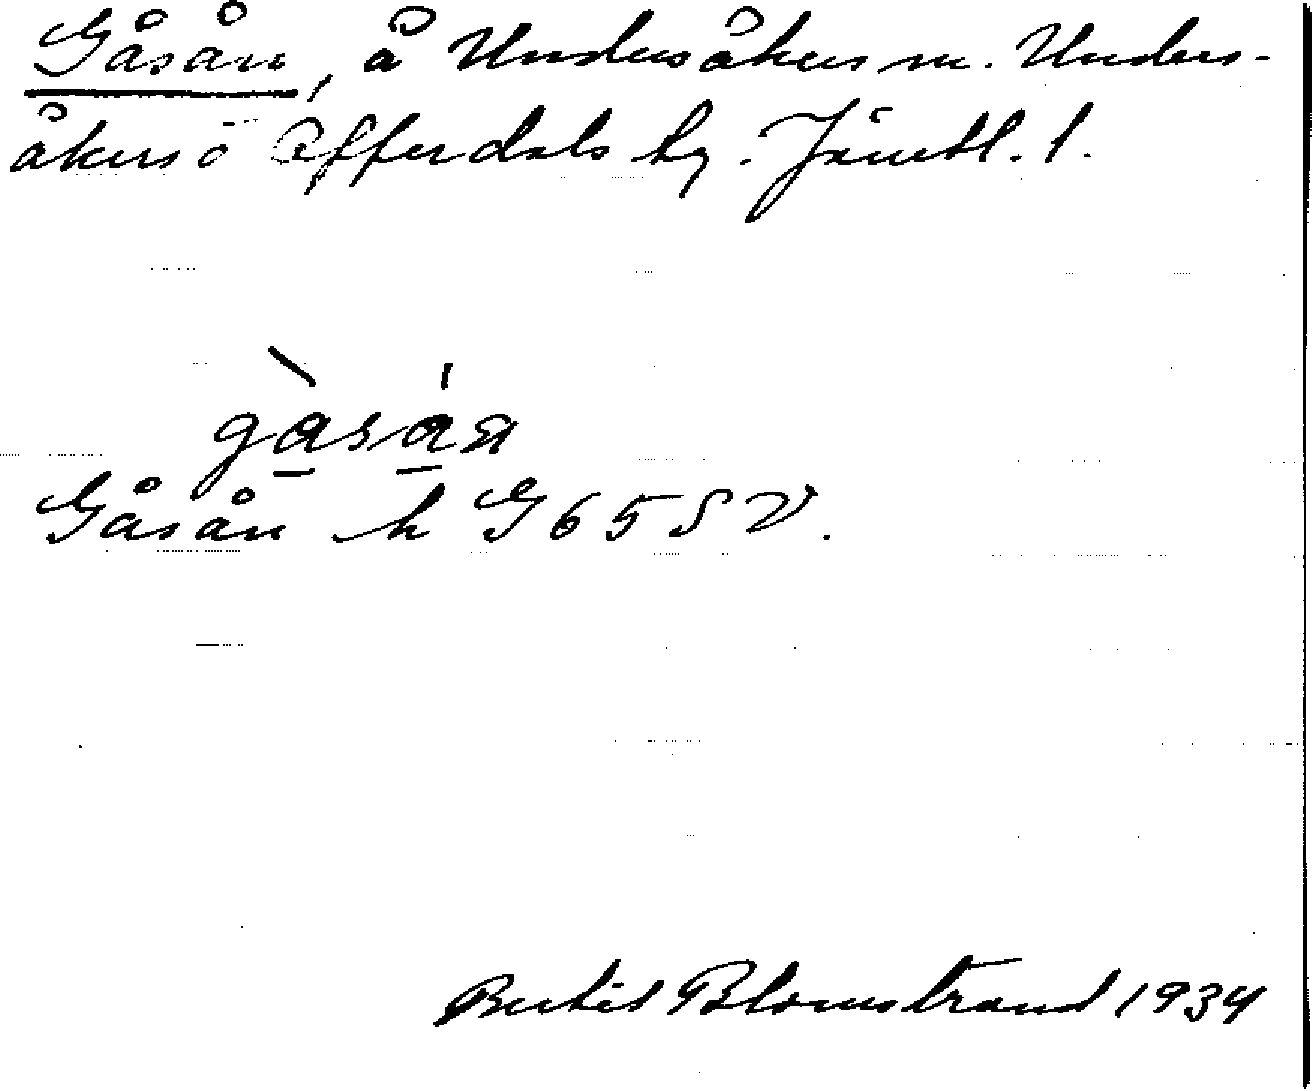 Gåsån, å Undersåkers sn. Unders-
åkers o Offerdals tg. Jämtl. l.
gàsán
Gåsån h G65SV.
Bertil Blomstrand 1934